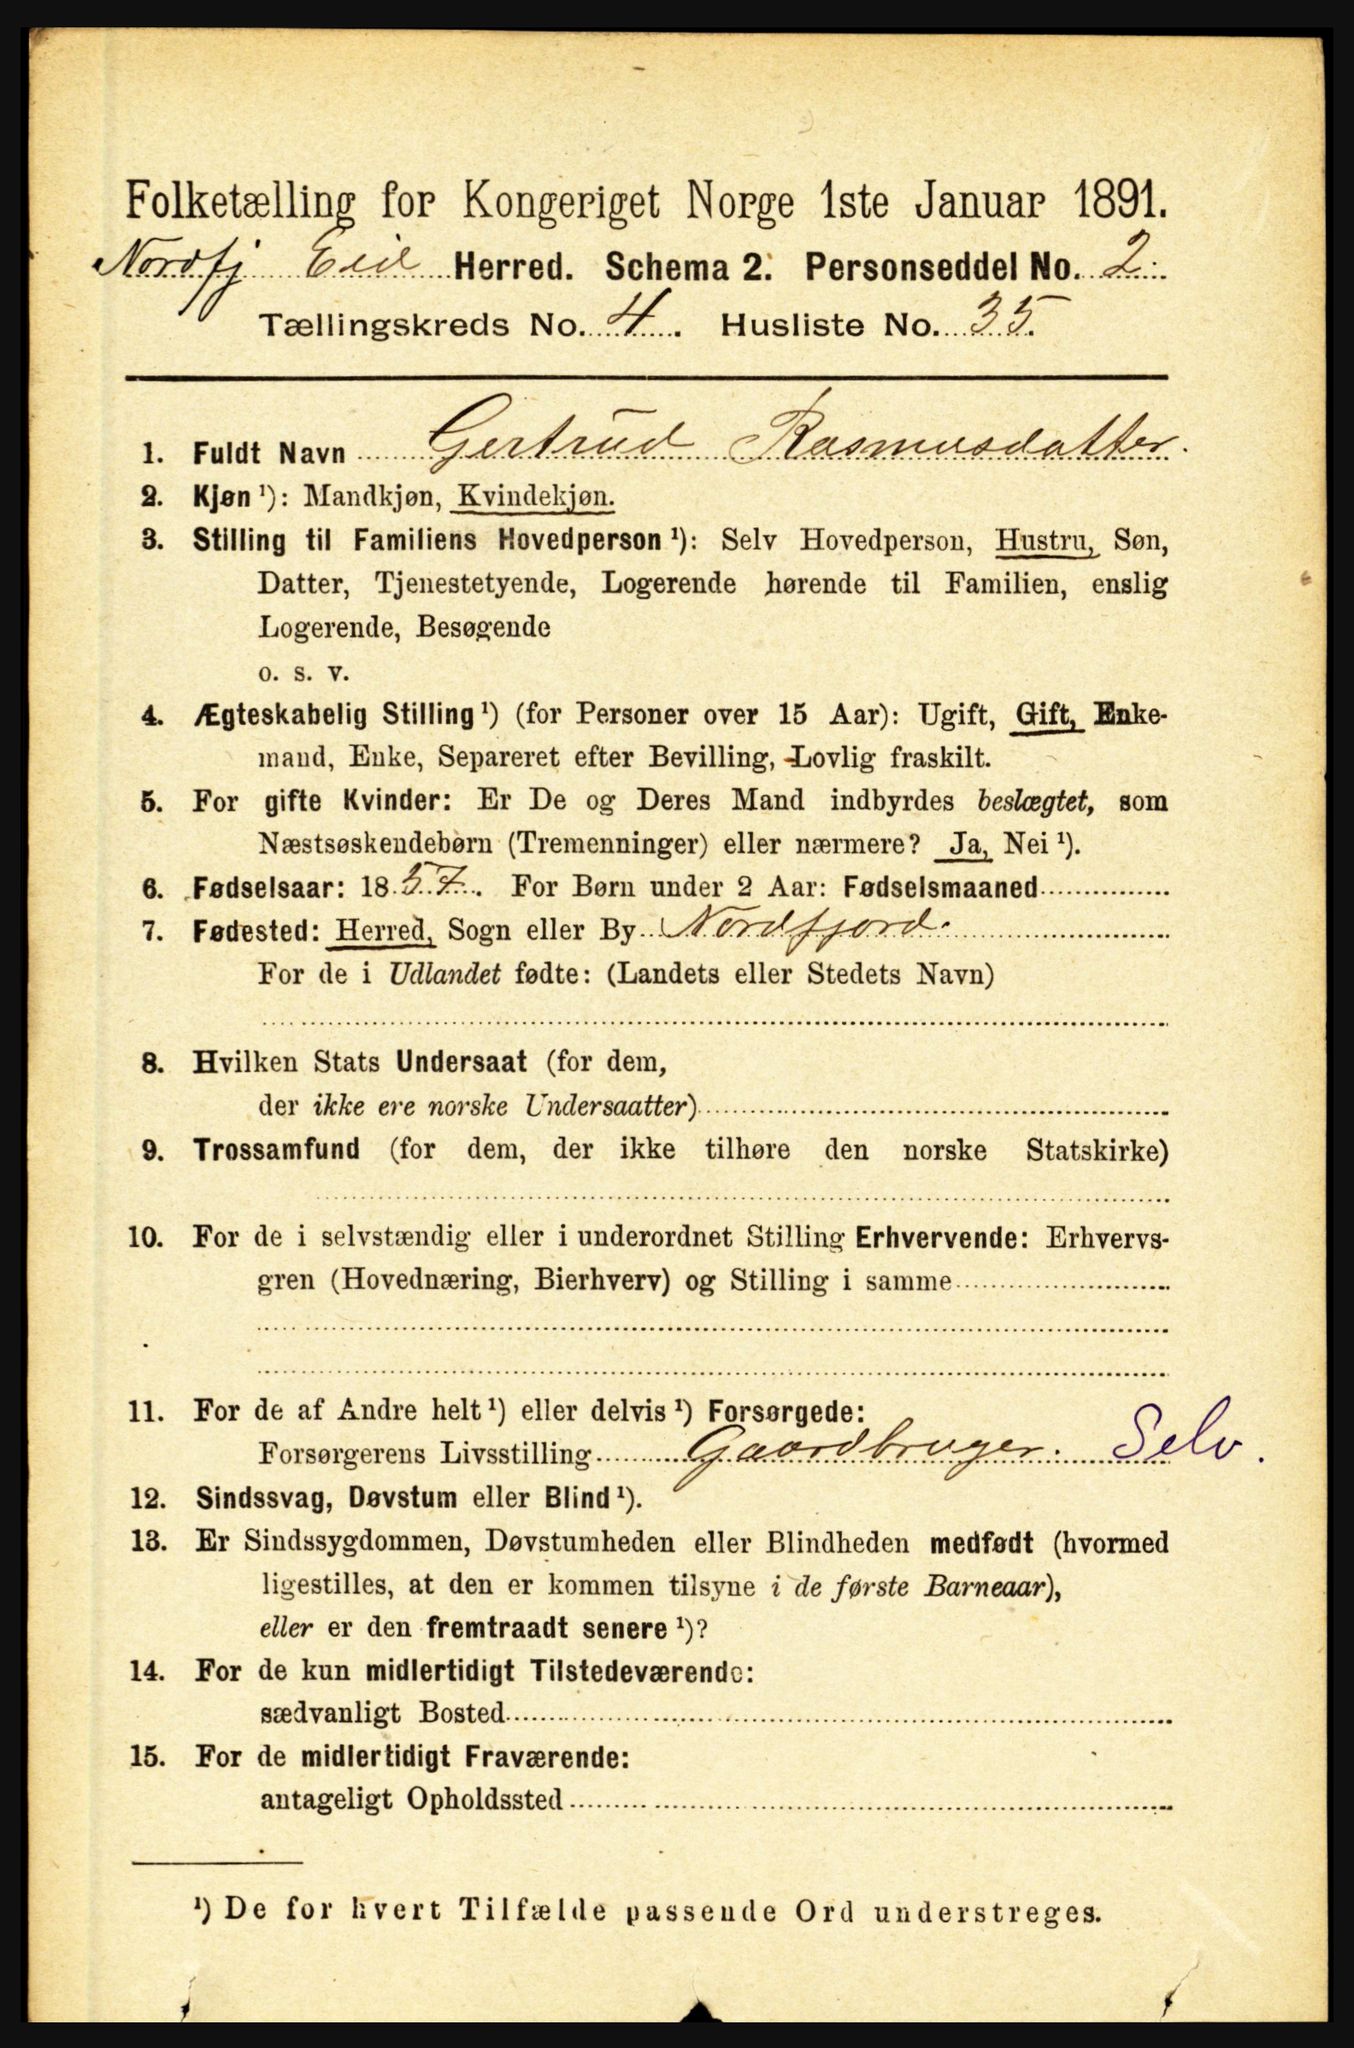 Folketælling for Kongeriget Norge 1ste Januar 1891.
Nordfj Eid Herred. Schema 2. Personseddel No. 2.
Tællingskreds No. 4. Husliste No. 35.
1. Fuldt Navn Gertrud Rasmusdatter.
2. Kjøn ¹): Mandkjøn, Kvindekjøn.
3. Stilling til Familiens Hovedperson ¹): Selv Hovedperson, Hustru, Søn,
Datter, Tjenestetyende, Logerende hørende til Familien, enslig
Logerende, Besøgende
o. s. v.
4. Ægteskabelig Stilling ¹) (for Personer over 15 Aar): Ugift, Gift, Enke-
mand, Enke, Separeret efter Bevilling, Lovlig fraskilt.
5. For gifte Kvinder: Er De og Deres Mand indbyrdes beslægtet, som
Næstsøskendebørn (Tremenninger) eller nærmere? Ja, Nei ¹).
6. Fødselsaar: 1857. For Børn under 2 Aar: Fødselsmaaned
7. Fødested: Herred, Sogn eller By Nordfjord.
For de i Udlandet fødte: (Landets eller Stedets Navn)
8. Hvilken Stats Undersaat (for dem,
der ikke ere norske Undersaatter)
9. Trossamfund (for dem, der ikke tilhøre den norske Statskirke)
10. For de i selvstændig eller i underordnet Stilling Erhvervende: Erhvervs-
gren (Hovednæring, Bierhverv) og Stilling i samme
11. For de af Andre helt ¹) eller delvis ¹) Forsørgede:
Forsørgerens Livsstilling Gaardbruger. Selv.
12. Sindssvag, Døvstum eller Blind ¹).
13. Er Sindssygdommen, Døvstumheden eller Blindheden medfødt (hvormed
ligestilles, at den er kommen tilsyne i de første Barneaar),
eller er den fremtraadt senere ¹)?
14. For de kun midlertidigt Tilstedeværende:
sædvanligt Bosted
15. For de midlertidigt Fraværende:
antageligt Opholdssted
¹) De for hvert Tilfælde passende Ord understreges.